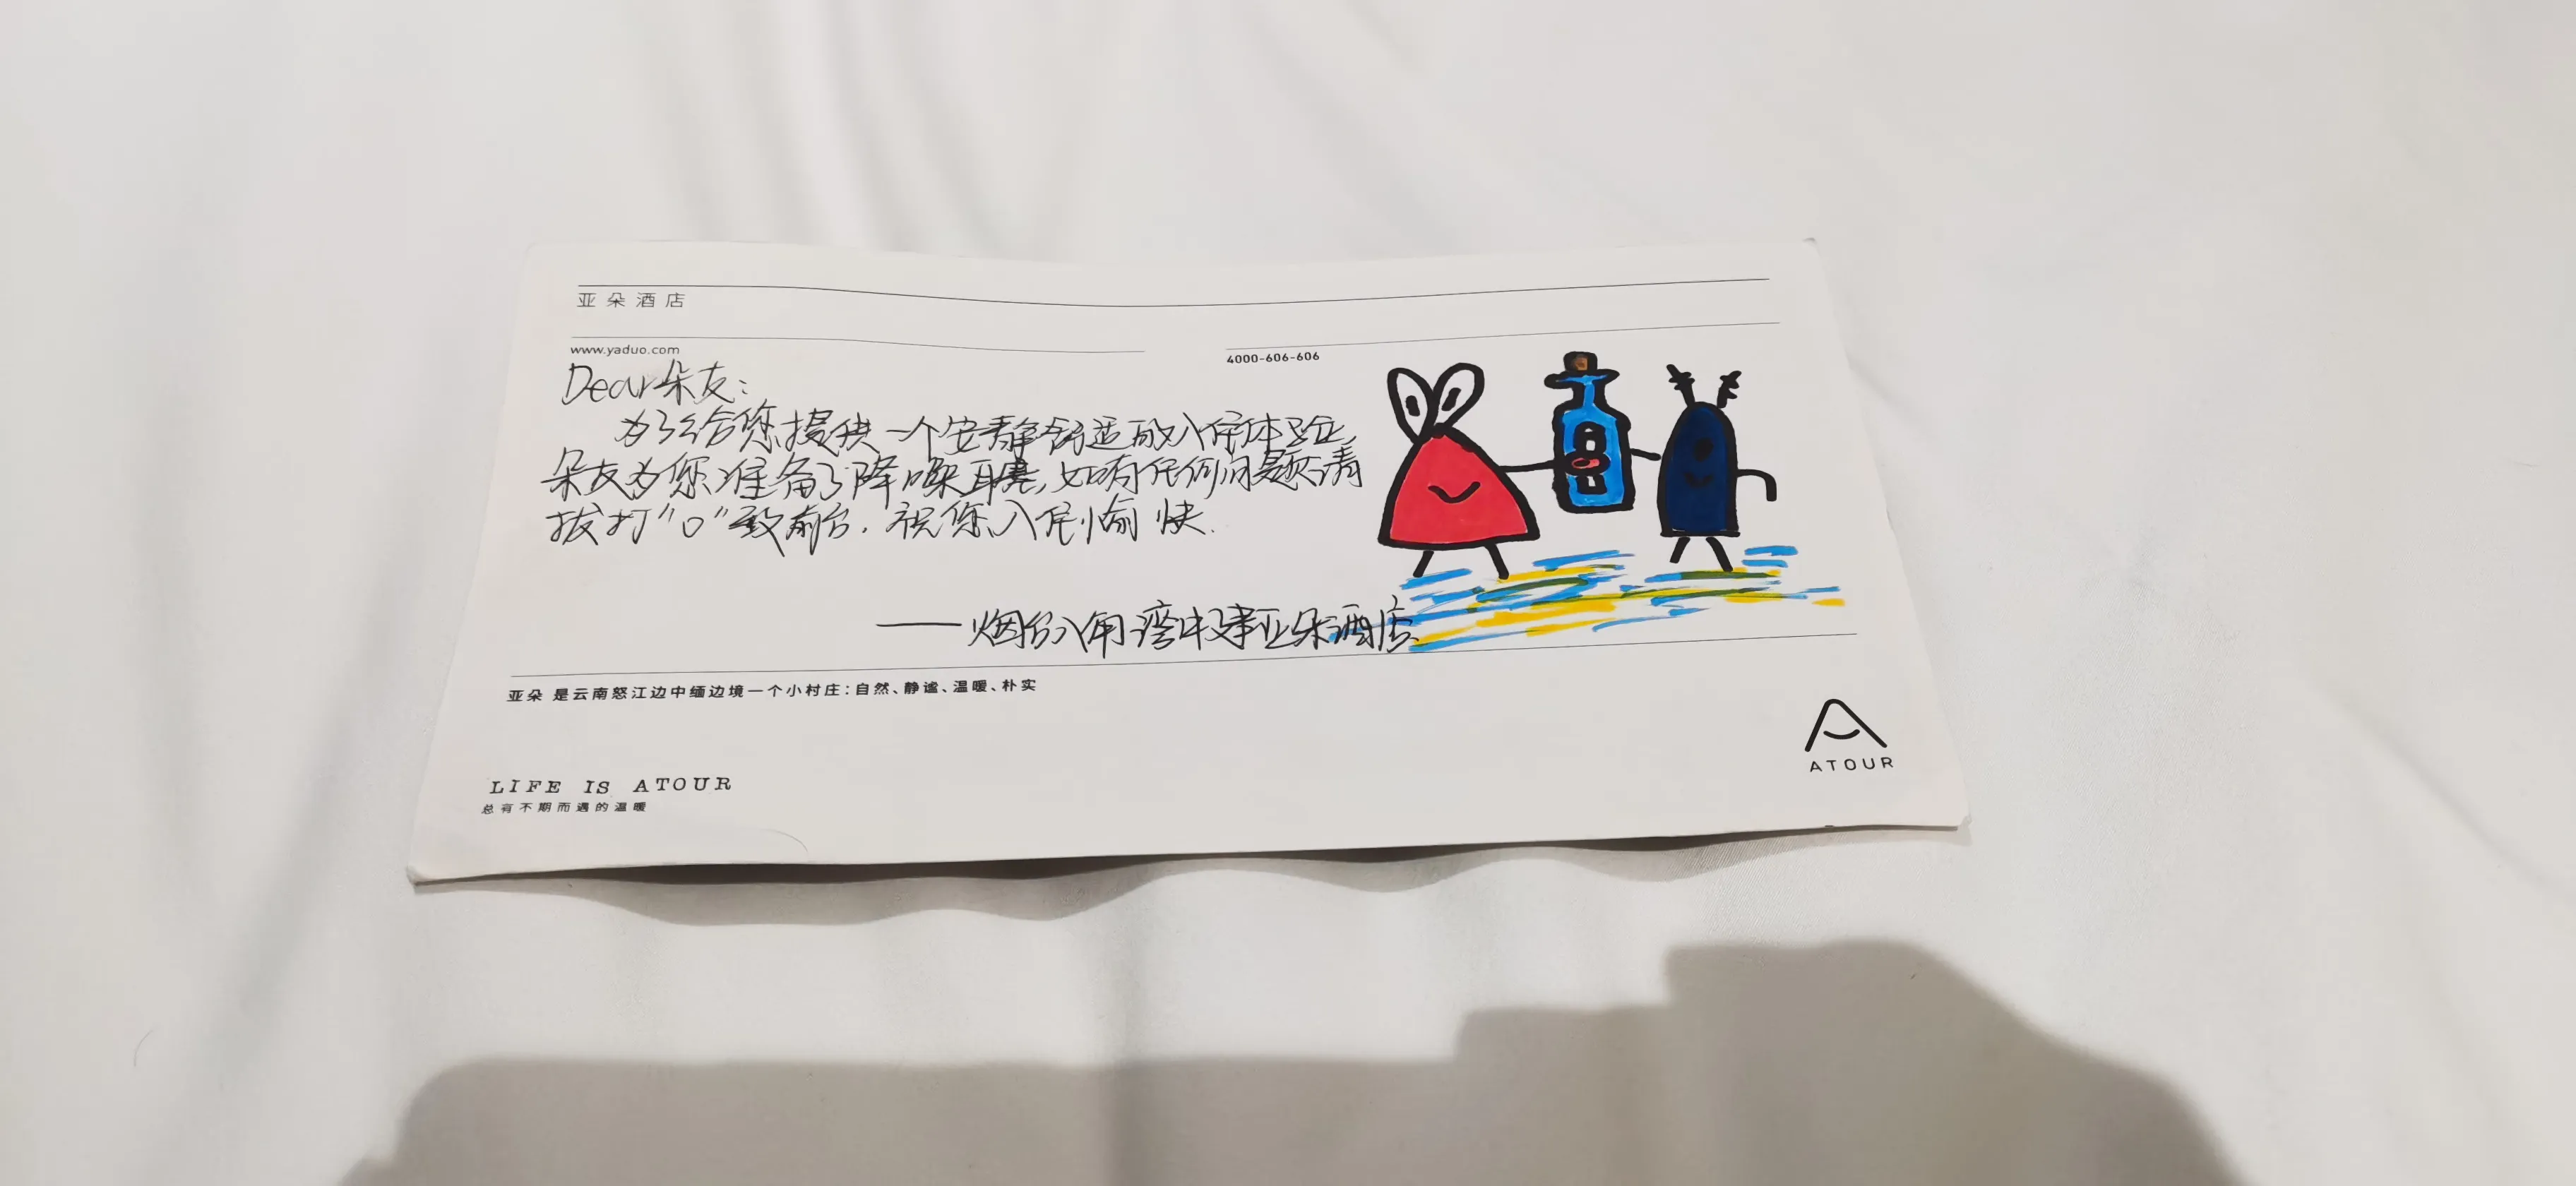 亚朵酒店
www.yaduo.com
4000-606-606
Dear朵友:
为了给您提供一个安静舒适的入住体验,
朵友为您准备了降噪耳塞,如有任何问题请
拔打"0"致前台.祝您入住愉快.
——烟台八角湾中建亚朵酒店
亚朵 是云南怒江边中缅边境一个小村庄:自然、静谧、温暖、朴实
LIFE IS ATOUR
总有不期而遇的温暖
ATOUR